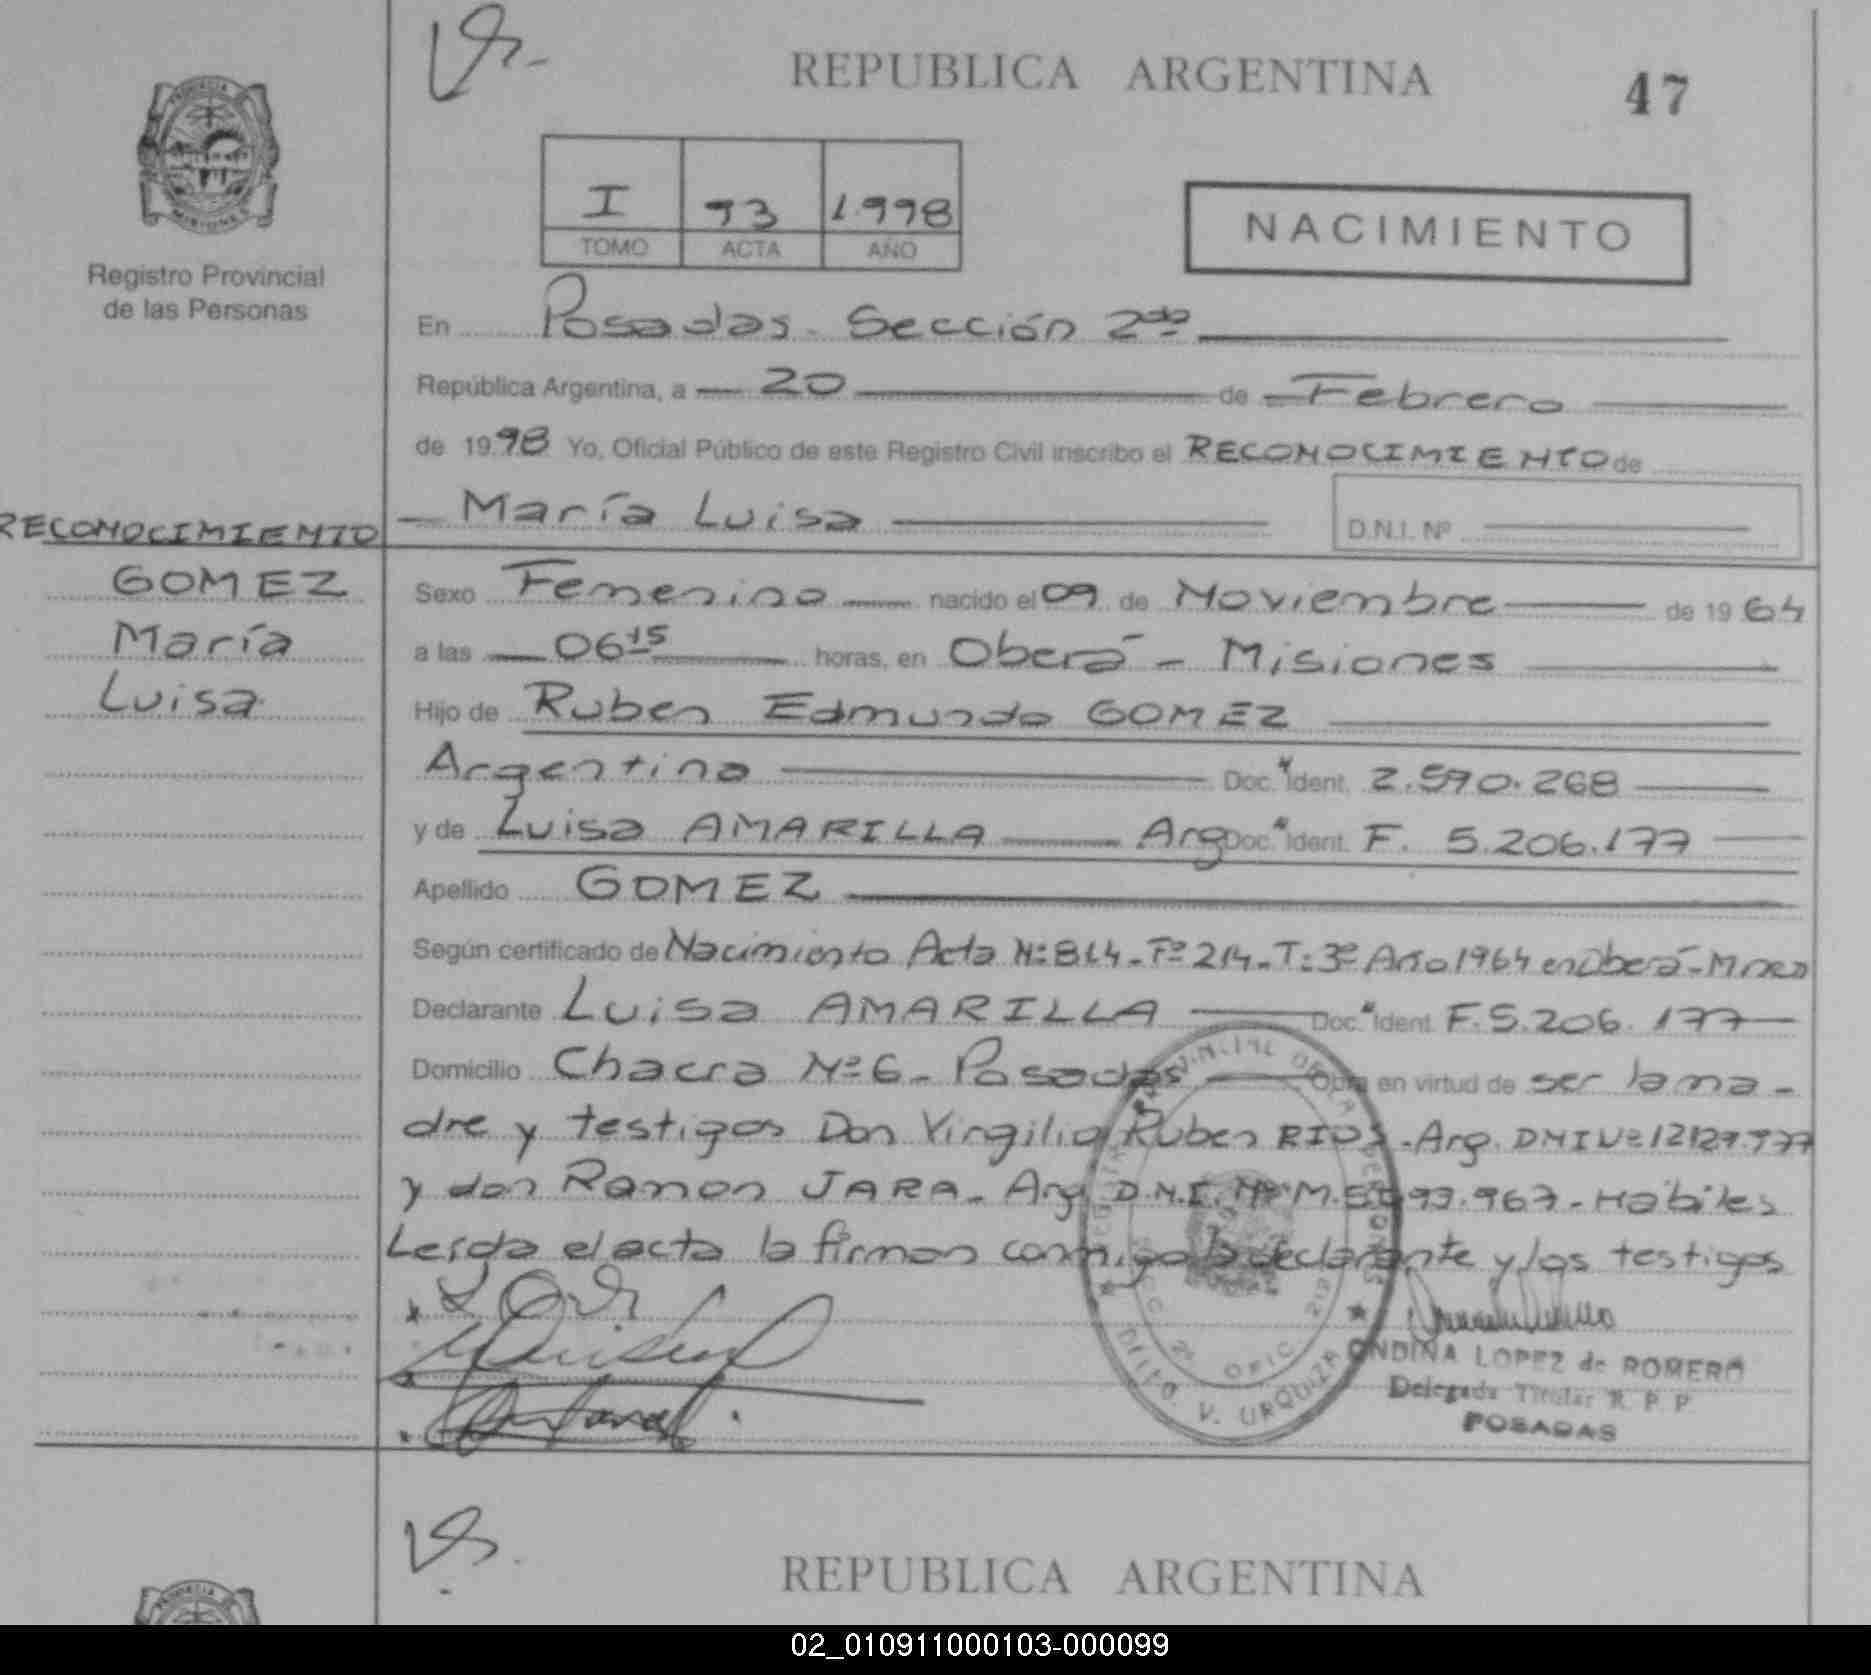 REPUBLICA ARGENTINA
47
I 93 1.998
TOMO ACTA AÑO
NACIMIENTO
Registro Provincial
de las Personas
En Posadas - Sección 2da
República Argentina, a 20 de Febrero
de 1998 Yo, Oficial Público de este Registro Civil inscribo el RECONOCIMIENTO de
María Luisa D.N.I. Nº
RECONOCIMIENTO
GOMEZ
María
Luisa
Sexo Femenino nacido el 09 de Noviembre de 1964
a las 06 15 horas, en Oberá - Misiones
Hijo de Ruben Edmundo GOMEZ
Argentina Doc. Ident. 2.590.268
y de Luisa AMARILLA Arg Doc. Ident. F. 5.206.177
Apellido GOMEZ
Según certificado de Nacimiento Acta Nº 814 - Fº 214 - T: 3º Año 1964 en Oberá - Mnes
Declarante Luisa AMARILLA Doc. Ident. F. 5.206.177
Domicilio Chacra Nº 6 - Posadas Obra en virtud de ser la ma-
dre y testigos Don Virgilio Ruben RIOS - Arg. DNI Nº
y don Ramon JARA - Arg D.N.I. Nº M. - Hábiles
Leída el acta la firman conmigo la declarante y los testigos
ONDINA LOPEZ de ROMERO
Delegada Titular R. P. P.
POSADAS
DPTO. V. URQUIZA
REPUBLICA ARGENTINA
02_010911000103-000099